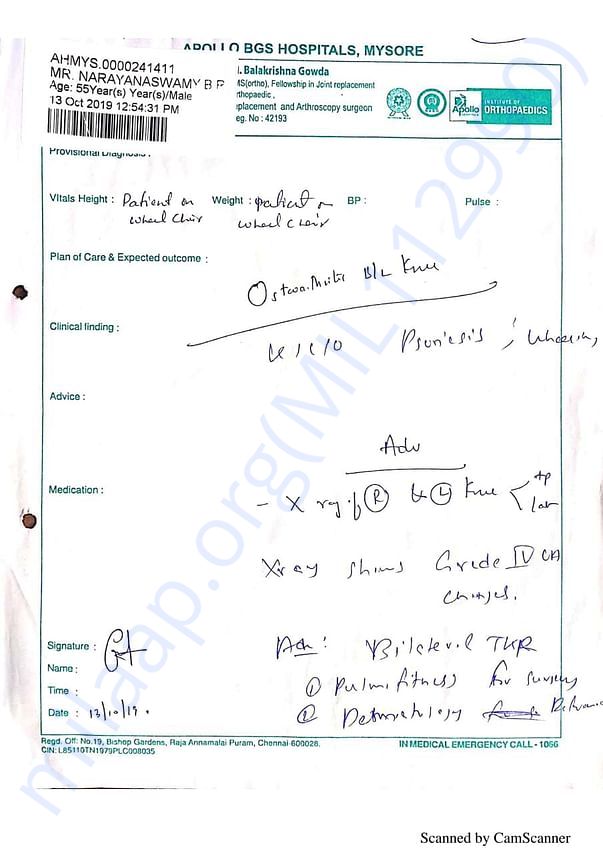 APOLLO BGS HOSPITALS, MYSORE
AHMYS.0000241411
MR. NARAYANASWAMY B P
Age: 55Year(s) Year(s)/Male
13 Oct 2019 12:54:31 PM
. Balakrishna Gowda
MS(ortho), Fellowship in Joint replacement
rthopaedic ,
eplacement and Arthroscopy surgeon
eg. No : 42193
Apollo
INSTITUTE OF
ORTHOPAEDICS
Provisional Diagnosis :
Vitals Height : Patient on Weight : patient on BP : Pulse :
wheel chair wheel chair
Plan of Care & Expected outcome :
B/L Knee
Clinical finding :
K/C/O Psoriesis ,
Advice :
Adv
Medication :
- X ray of R & L Knee AP
Lat
Xray shows Grade IV OA
changes.
Signature :
Adv : Bilateral TKR
Name :
1 Pulmo fitness for surgery
Time :
2
Date : 13/10/19.
Regd. Off: No.19, Bishop Gardens, Raja Annamalai Puram, Chennai-600028.
CIN: L85110TN1979PLC008035
IN MEDICAL EMERGENCY CALL - 1066
milaap.org(MIL112990)
Scanned by CamScanner